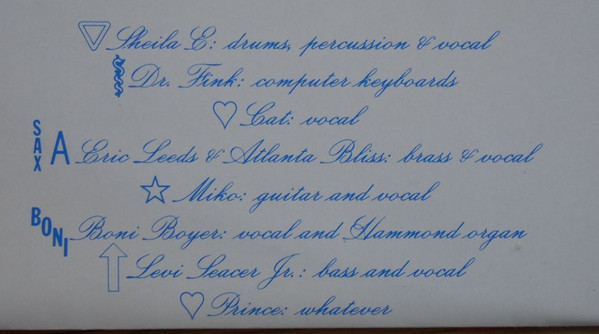 Sheila E: drums, percussion & vocal
Dr. Fink: computer keyboards
Cat: vocal
SAX A Eric Leeds & Atlanta Bliss: brass & vocal
Miko: guitar and vocal
BONI Boni Boyer: vocal and Hammond organ
Levi Seacer Jr.: bass and vocal
Prince: whatever